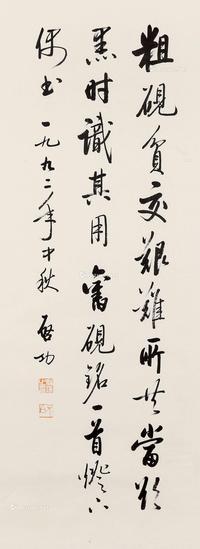 粗砚贫交艰难所共当欲
黑时识其用旧砚铭一首灯下
偶书一九九二年中秋启功